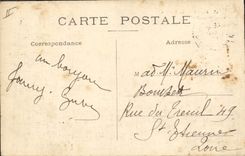 CARTE POSTALE
Correspondance
Adresse
un bonjour
Fanny
M ad. Maurin
Rue du Treuil 49
St Etienne
Loire